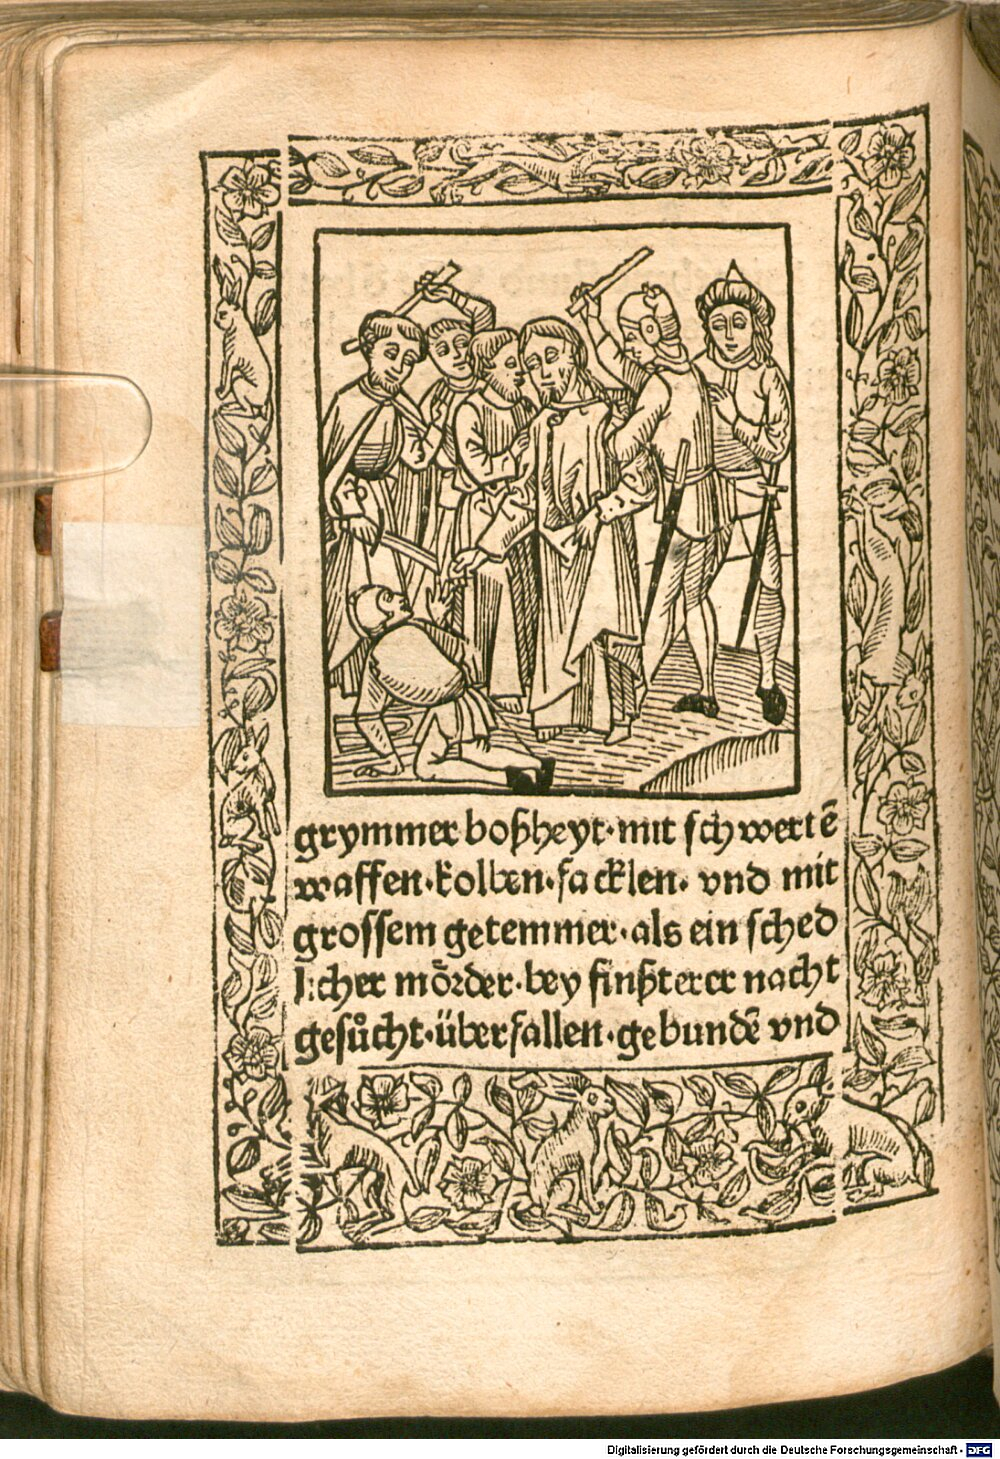 grymmer boßheyt·mit schwertē
waffen·kolben·facklen· vnd mit
grossem getemmer·als ein sched
licher mȯ̈rder·bey finßterer nacht
gesůcht·überfallen·gebundē vnd
Digitalisierung gefördert durch die Deutsche Forschungsgemeinschaft - DFG